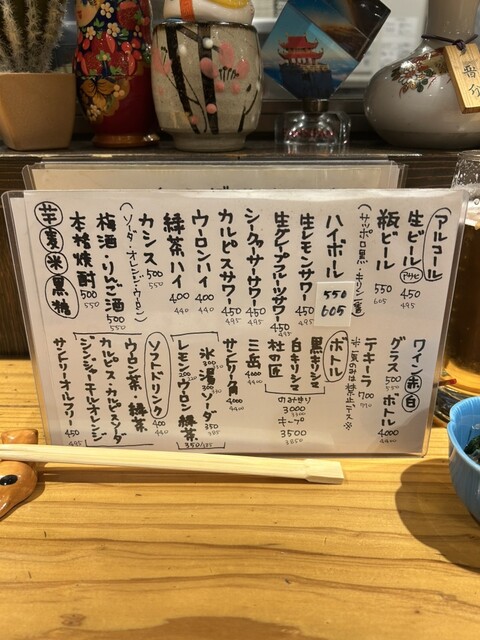 アルコール
生ビール アサヒ 450 495
瓶ビール 550 605
(サッポロ黒・キリン一番)
ハイボール 550 605
生レモンサワー 450 495
生グレープフルーツサワー 450 495
シークヮーサーサワー 450 495
カルピスサワー 450 495
ウーロンハイ 400 440
緑茶ハイ 400 440
カシス 500 550
(ソーダ・オレンジ・ウーロン)
梅酒・りんご酒 500 550
本格焼酎 500 550
芋 麦 米 黒糖
ワイン 赤 白
グラス 500 550 ボトル 4000 4400
テキーラ 700 770
ボトル
黒キリシマ
白キリシマ
杜の匠
のみきり 3000 3300
キープ 3500 3850
三岳 4000 4400
サントリー角 4000 4400
氷 湯 ソーダ 350 385
レモン・ウーロン 緑茶 350/385
ソフトドリンク 400 440
ウーロン茶・緑茶
カルピス・カルピスソーダ
ジンジャーエール・オレンジ
サントリーオールフリー 450 495